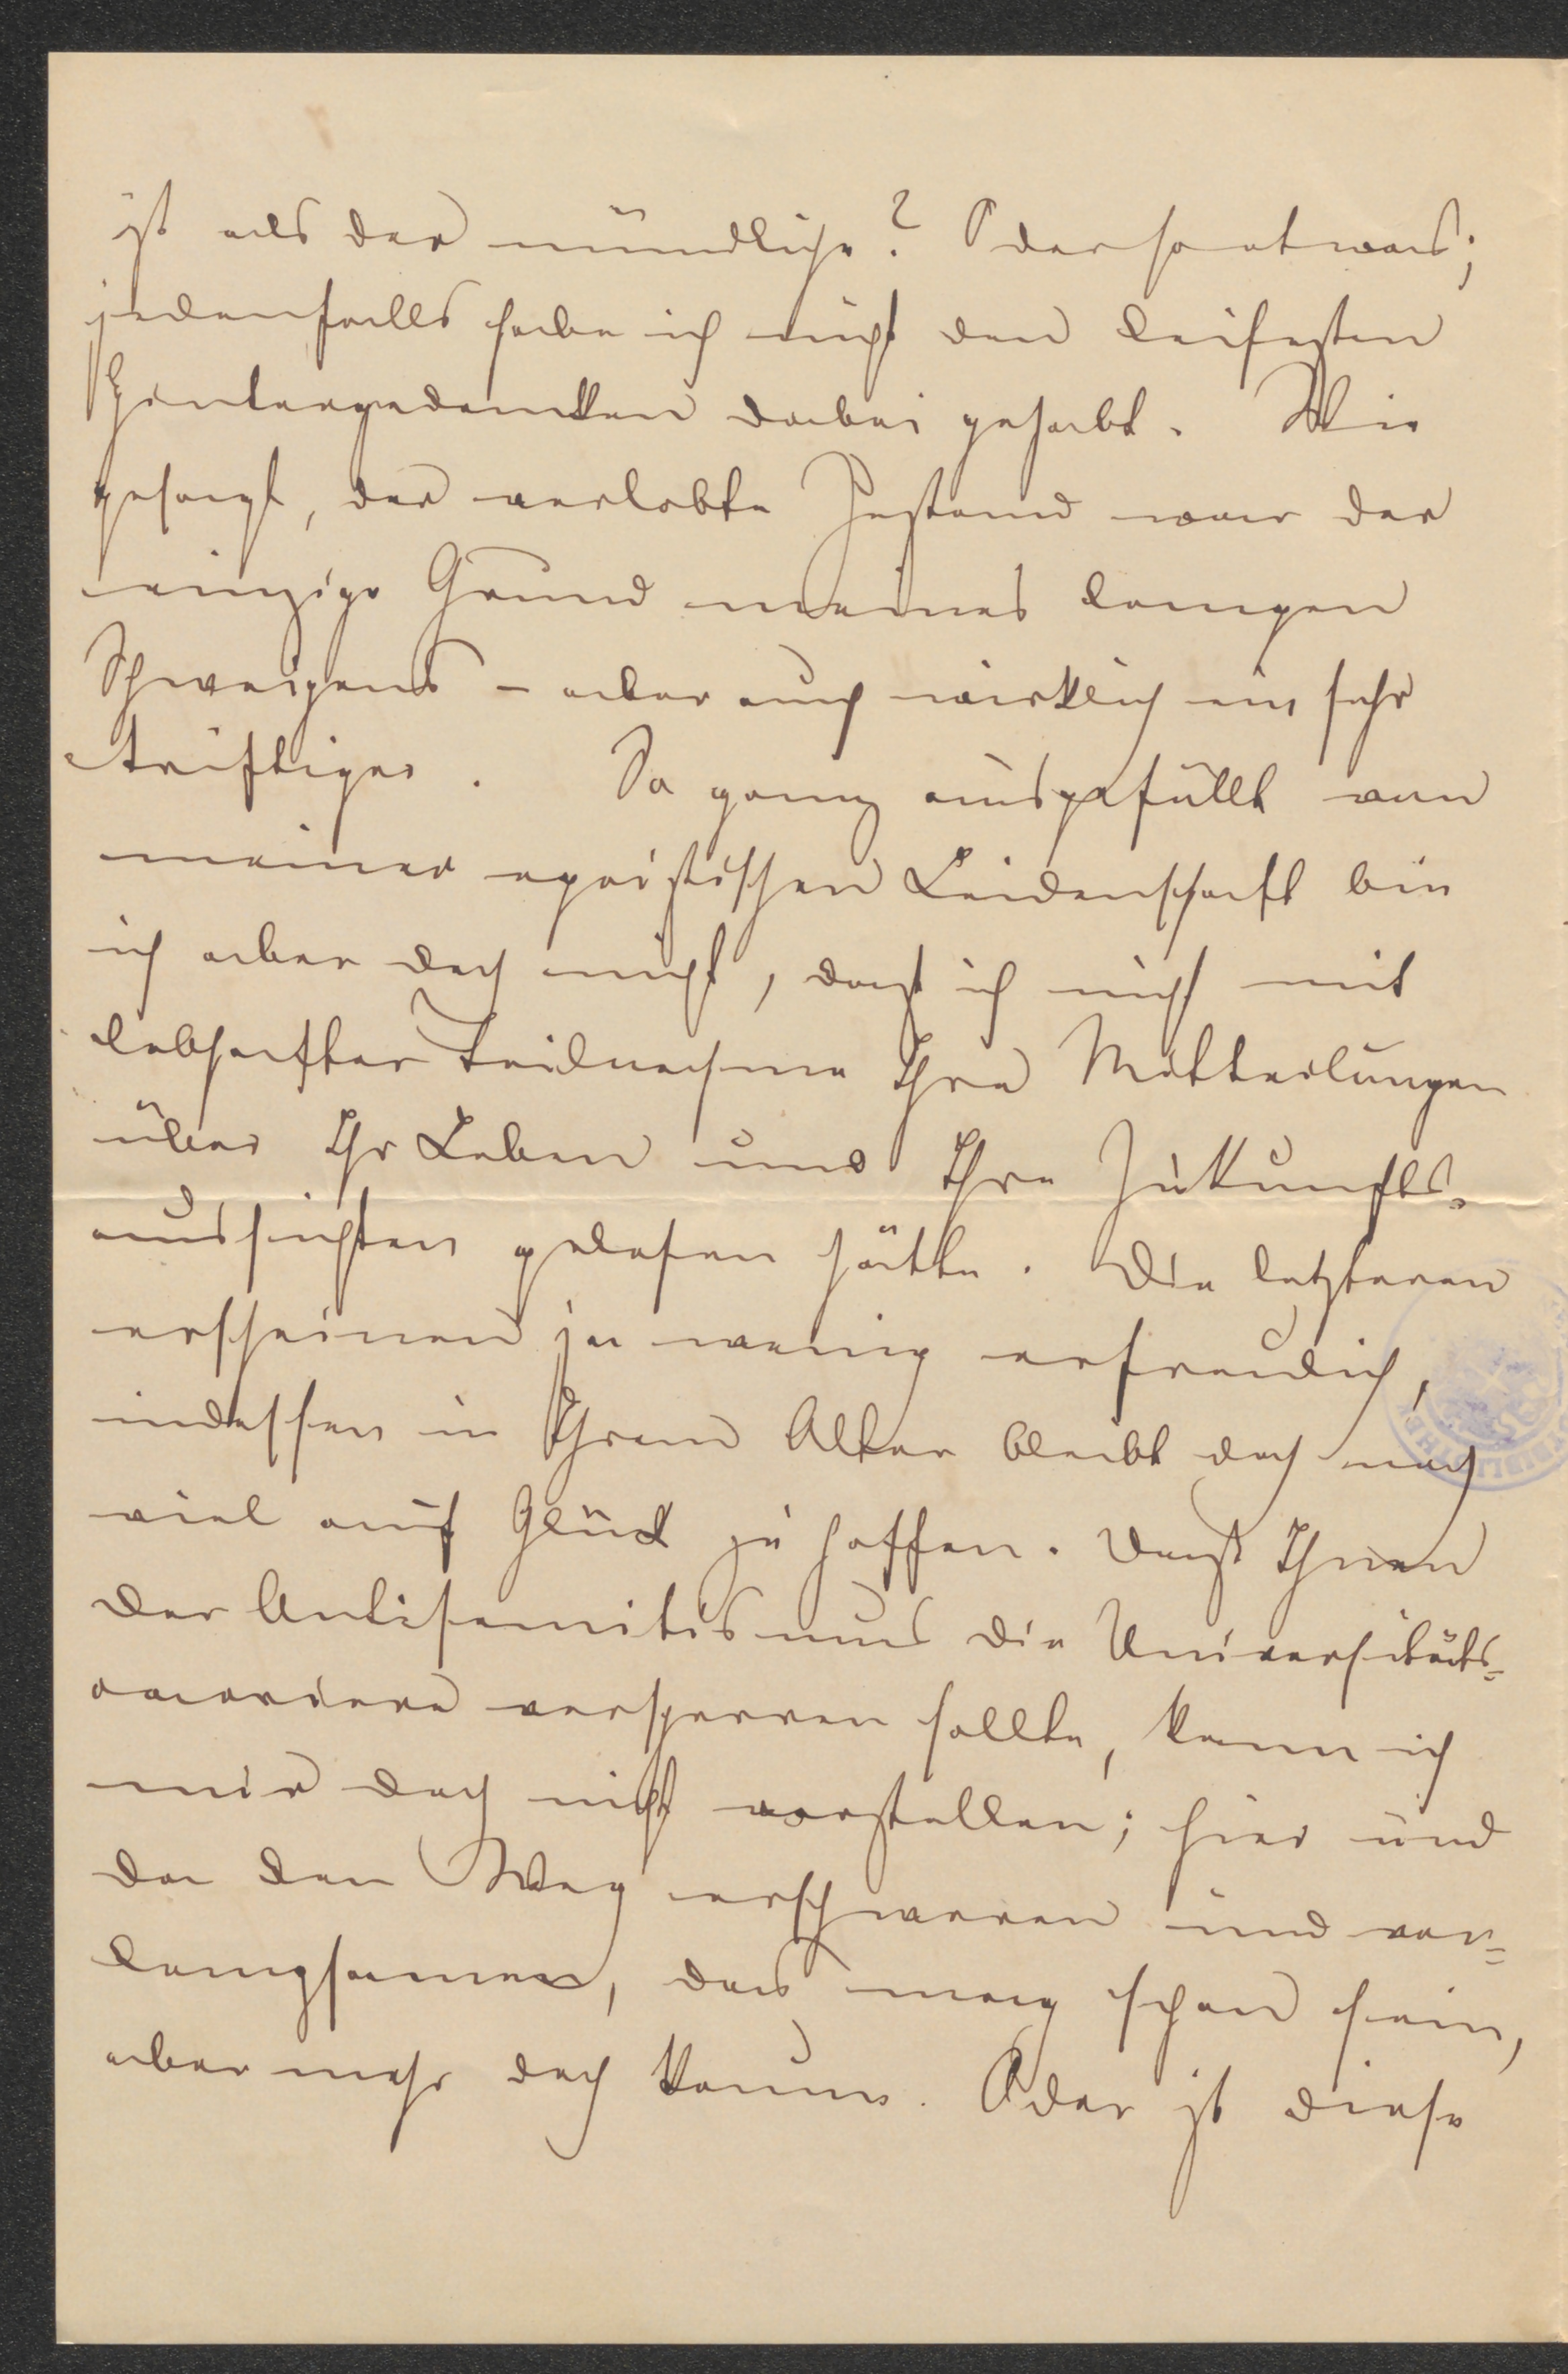 ist als der mündliche? Oder so etwas;
jedenfalls habe ich nicht den leisesten
Hintergedanken dabei gehabt. Wie
gesagt, der verlobte Zustand war der
einzige Grund meines langen
Schweigens – aber auch wirklich ein sehr
triftiger. So ganz ausgefüllt von
meiner egoistischen Leidenschaft bin
ich aber doch nicht, dass ich nicht mit
lebhafter Teilnahme Ihre Mitteilungen
über Ihr Leben und Ihre Zukunfts-
aussichten gelesen hätte. Die letzteren
erscheinen ja wenig erfreulich,
indessen in Ihrem Alter bleibt doch noch
viel auf Glück zu hoffen. Dass Ihnen
der Antisemitismus die Universitäts-
carriere versperren sollte, kann ich
mir doch nicht vorstellen; hier und
da den Weg erschweren und ver-
langsamen, das mag schon sein,
aber mehr doch kaum. Oder ist diese